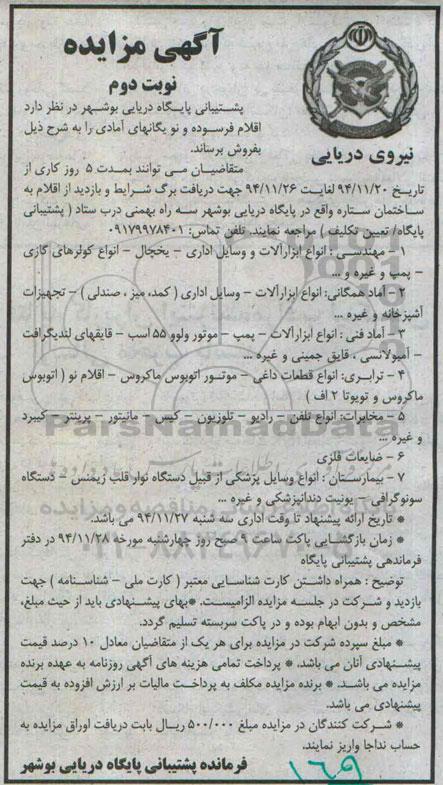 آگهی مزایده
نوبت دوم
نیروی دریایی
پشتیبانی پایگاه دریایی بوشهر در نظر دارد
اقلام فرسوده و نو یگانهای آمادی را به شرح ذیل
بفروش برساند.
متقاضیان می توانند بمدت ۵ روز کاری از
تاریخ ۹۴/۱۱/۲۰ لغایت ۹۴/۱۱/۲۶ جهت دریافت برگ شرایط و بازدید از اقلام به
ساختمان ستاره واقع در پایگاه دریایی بوشهر سه راه بهمنی درب ستاد ( پشتیبانی
پایگاه/ تعیین تکلیف ) مراجعه نمایند. تلفن تماس: ۰۹۱۷۹۹۷۸۴۰۱
۱ – مهندسی : انواع ابزارآلات و وسایل اداری – یخچال – انواع کولرهای گازی
– پمپ و غیره و ...
۲ – آماد همگانی: انواع ابزارآلات – وسایل اداری ( کمد، میز ، صندلی ) – تجهیزات
آشپزخانه و غیره ...
۳ – آماد فنی : انواع ابزارآلات – پمپ – موتور ولوو ۵۵ اسب – قایقهای لندیگرافت
– آمبولانسی ، قایق جمینی و غیره ...
۴ – ترابری: انواع قطعات داغی – موتور اتوبوس ماکروس – اقلام نو ( اتوبوس
ماکروس و تویوتا ۲ اف )
۵ – مخابرات: انواع تلفن – رادیو – تلوزیون – کیس – مانیتور – پرینتر – کیبرد
و غیره ...
۶ – ضایعات فلزی
۷ – بیمارستان : انواع وسایل پزشکی از قبیل دستگاه نوار قلب زیمنس – دستگاه
سونوگرافی – یونیت دندانپزشکی و غیره ...
* تاریخ ارائه پیشنهاد تا وقت اداری سه شنبه ۹۴/۱۱/۲۷ می باشد.
* زمان بازگشایی پاکت ساعت ۹ صبح روز چهارشنبه مورخه ۹۴/۱۱/۲۸ در دفتر
فرماندهی پشتیبانی پایگاه
توضیح : همراه داشتن کارت شناسایی معتبر ( کارت ملی – شناسنامه ) جهت
بازدید و شرکت در جلسه مزایده الزامیست. *بهای پیشنهادی باید از حیث مبلغ،
مشخص و بدون ابهام بوده و در پاکت سربسته تسلیم گردد.
* مبلغ سپرده شرکت در مزایده برای هر یک از متقاضیان معادل ۱۰ درصد قیمت
پیشنهادی آنان می باشد. * پرداخت تمامی هزینه های آگهی روزنامه به عهده برنده
مزایده می باشد. * برنده مزایده مکلف به پرداخت مالیات بر ارزش افزوده به قیمت
پیشنهادی می باشد.
* شرکت کنندگان در مزایده مبلغ ۵۰۰/۰۰۰ ریال بابت دریافت اوراق مزایده به
حساب نداجا واریز نمایند.
فرمانده پشتیبانی پایگاه دریایی بوشهر
۱۶۹
ParsNamadData